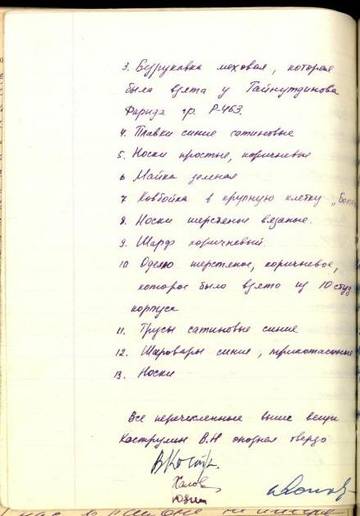 3. Безрукавка меховая, которая
была взята у Гайнутдинова
Фарида гр. Р-463.
4. Плавки синие сатиновые
5. Носки простые, коричневые
6 Майка зеленая
7 Ковбойка в крупную клетку
8. Носки шерстяные вязаные.
9. Шарф коричневый
10 Одеяло шерстяное, коричневое,
которое было взято из 10 студ
корпуса
11. Трусы сатиновые синие
12. Шаровары синие, трикотажные
13. Носки
Все перечисленные выше вещи
Кострулин В.Н опознал твердо